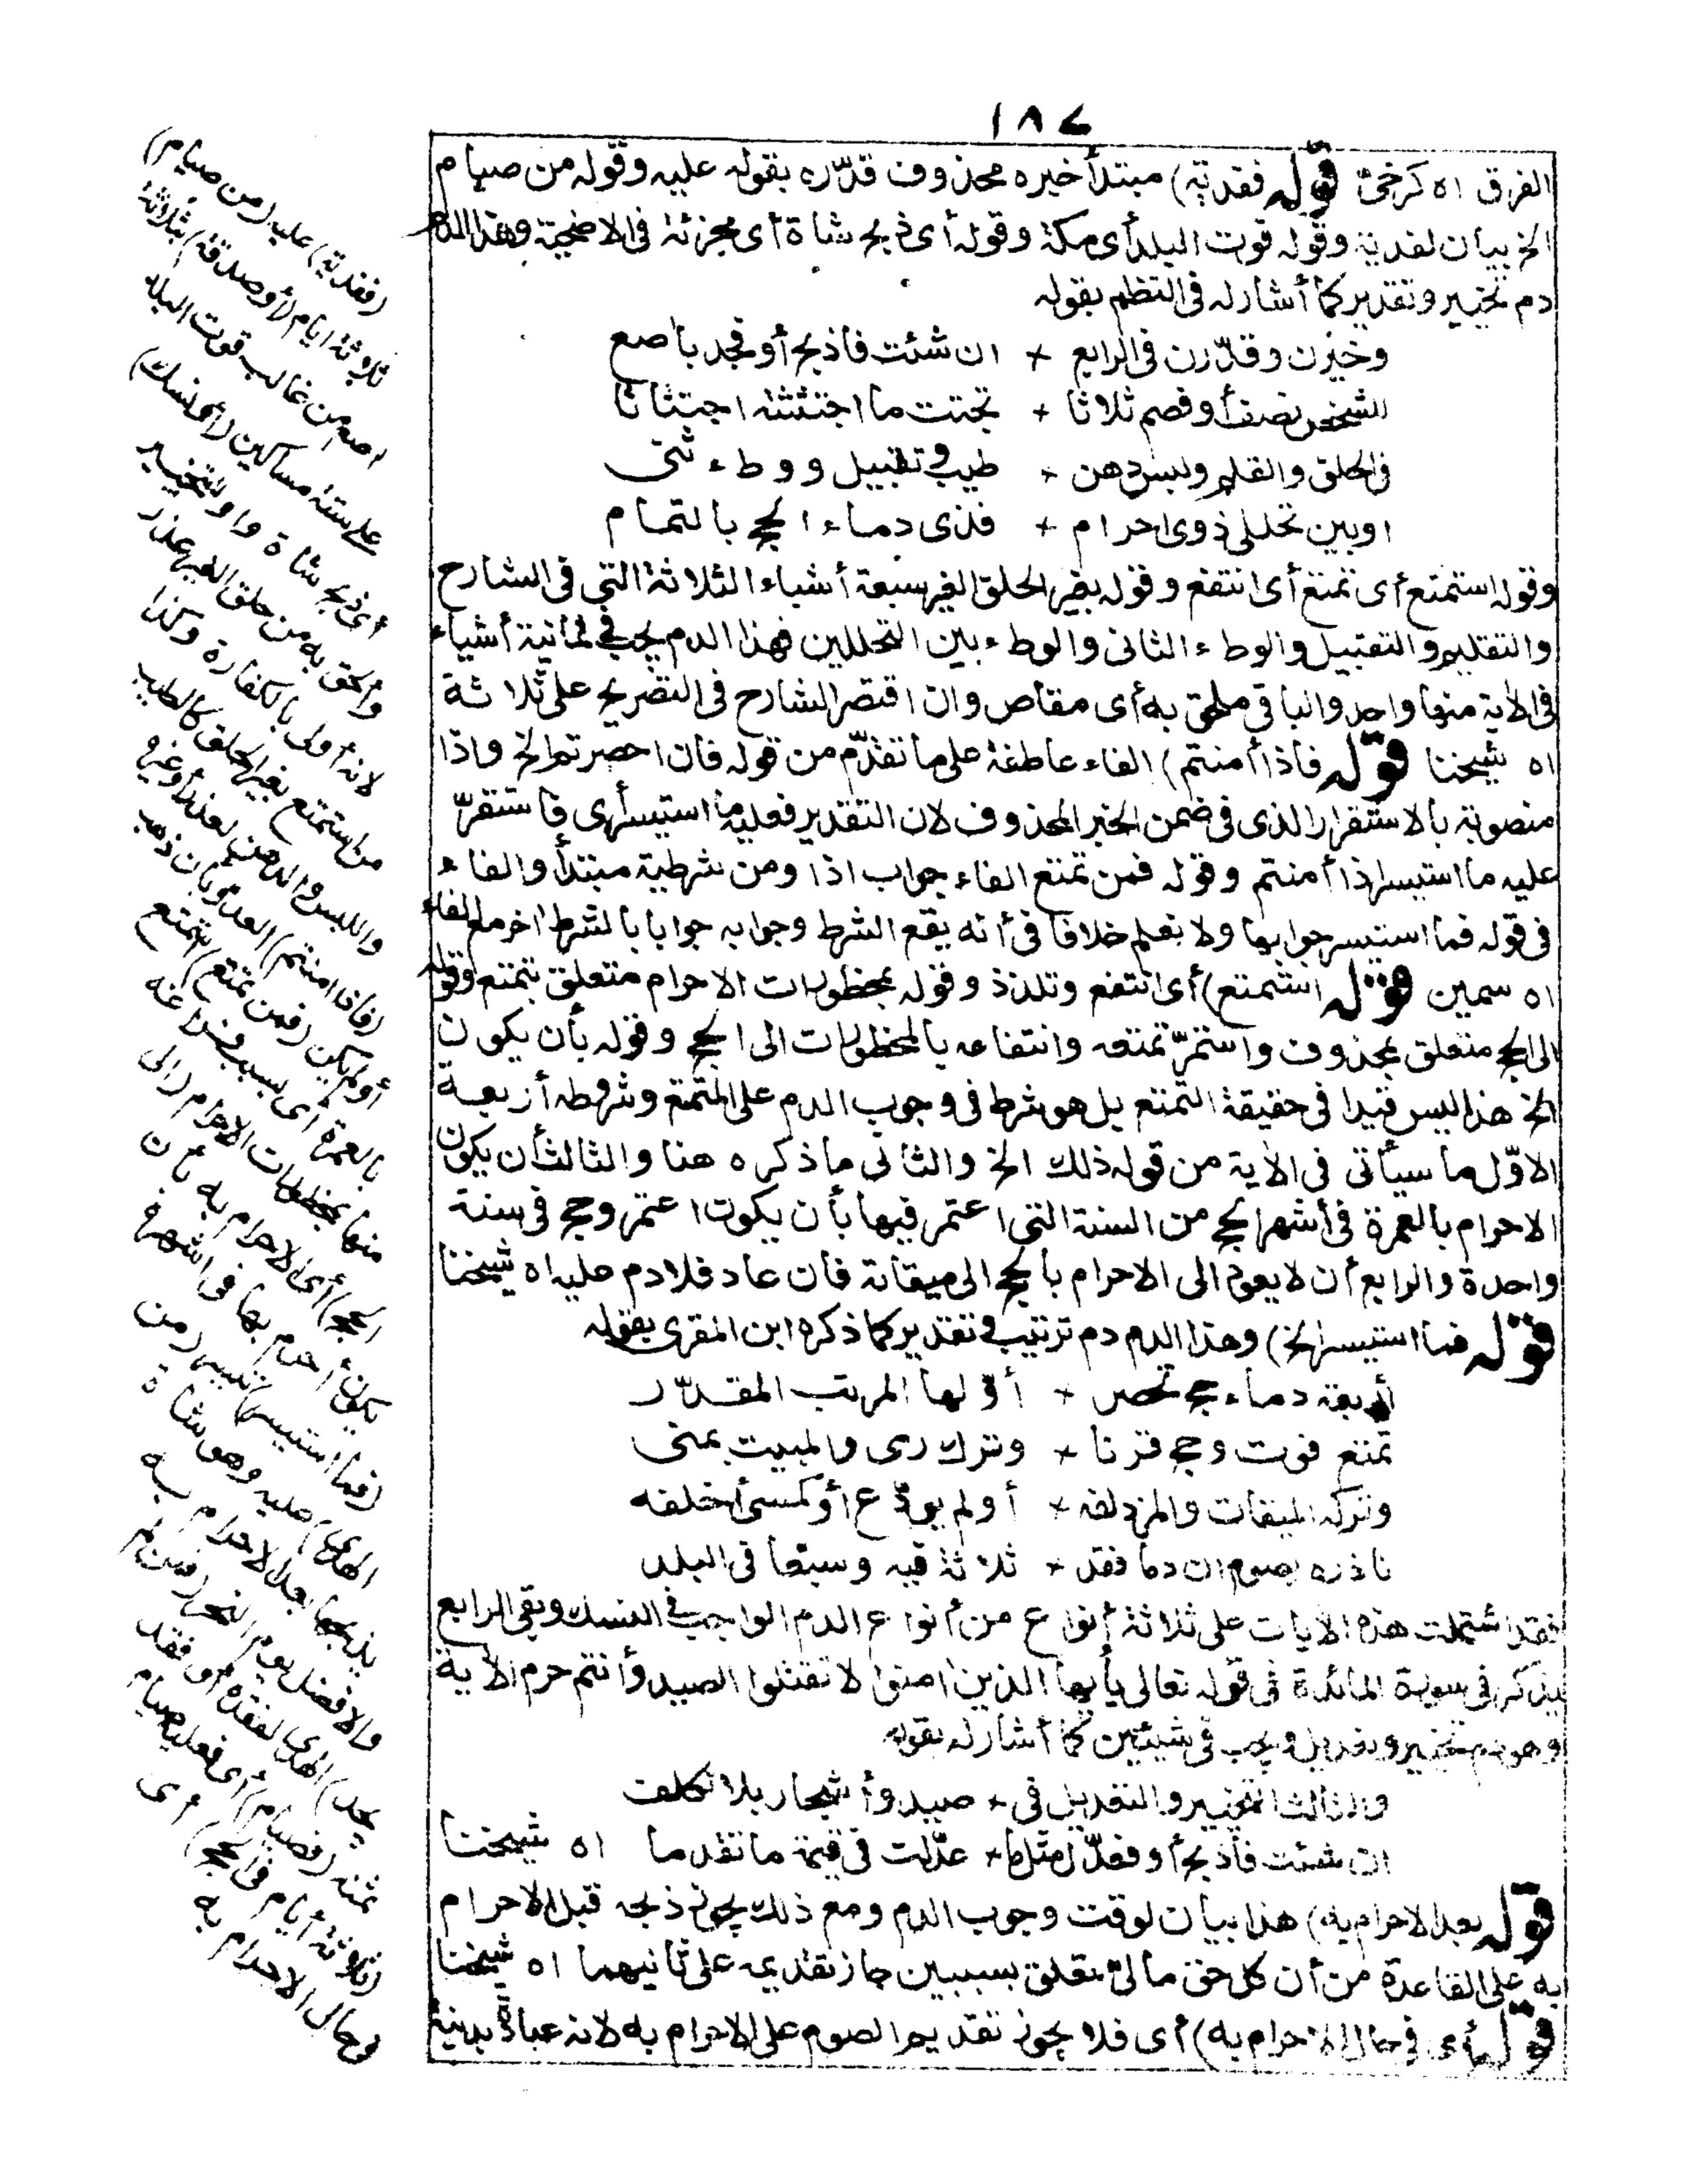 ١٨٧
الفرق اه كرخى قوله ففدية) مبتدأ خبره محذوف قدّره بقوله عليه وقوله من صيام
الخ بيان لفدية وقوله قوت البلد أى مكة وقوله أى ذبح شاة أى مجزئة فى الاضحية وهذا الدم
دم تخيير وتقدير كما أشار له فى النظم بقوله
وخيّرن وقدّرن فى الرابع + ان شئت فاذبح أو فجد باصع
للشخص نصف أو فصم ثلاثا + تجتث ما اجتثثته اجتثاثا
فى الحلق والقلم ولبس دهن + طيب وتقبيل ووطء ثنى
او بين تحللى ذوى احرام + فذى دماء الحج بالتمام
وقوله استمتع أى تمتع أى انتفع وقوله بغير الحلق الغير سبعة أشياء الثلاثة التى فى الشارح
والتقليم والتقبيل والوطء الثانى والوطء بين التحللين فهذا الدم يجب فى ثمانية أشياء
فى الآية منها واحد والباقى ملحق به أى مقاس وان اقتصر الشارح فى التضريح على ثلاثة
اه شيخنا قوله فاذا أمنتم) الفاء عاطفة على ما تقدّم من قوله فان احصرتم الخ واذا
منصوبة بالاستقرار الذى فى ضمن الخبر المحذوف لان التقدير فعليه ما استيسر أى فاستقرّ
عليه ما استيسر اذا أمنتم وقوله فمن تمتع الفاء جواب اذا ومن شرطية مبتدأ والفاء
فى قوله فما استيسر جوابها ولا نعلم خلافا فى أنه يقع الشرط وجوابه جوابا بالشرط اخر مع الفاء
اه سمين قوله استمتع) أى انتفع وتلذذ وقوله بمحظورات الاحرام متعلق بتمتع وقوله
الى الحج متعلق بمحذوف واستمرّ تمتعه وانتفاعه بالمحظورات الى الحج وقوله بأن يكون
الخ هذا ليس قيدا فى حقيقة التمتع بل هو شرط فى وجوب الدم على المتمتع وشروطه أربعة
الاوّل ما سيأتى فى الآية من قوله ذلك الخ والثانى ما ذكره هنا والثالث أن يكون
الاحرام بالعمرة فى أشهر الحج من السنة التى اعتمر فيها بأن يكون اعتمر وحج فى سنة
واحدة والرابع أن لا يعود الى الاحرام بالحج الى ميقاته فان عاد فلا دم عليه اه شيخنا
قوله فما استيسر الخ) وهذا الدم دم ترتيب وتقدير كما ذكره ابن المقرى بقوله
أربعة دماء حج تحصر + أوّلها المرتب المقدّر
تمتع فوت وحج قرنا + وترك رمى والمبيت بمنى
وتركه الميقات والمزدلفه + أو لم يودّع أو كمشى أخلفه
ناذره يصوم ان دما فقد + ثلاثة فيه وسبعا فى البلد
فقد اشتملت هذه الآيات على ثلاثة أنواع من أنواع الدم الواجب فى النسك وبقى الرابع
يذكر فى سورة المائدة فى قوله تعالى يأيها الذين امنوا لا تقتلوا الصيد وأنتم حرم الآية
وهو دم تخيير وتعديل ويجب فى شيئين كما أشار له بقوله
والثالث التخيير والتعديل فى + صيد وأشجار بلا تكلف
ان شئت فاذبح أو فعدّل مثل ما + عدّلت فى قيمة ما تقدما اه شيخنا
قوله بعد الاحرام به) هذا بيان لوقت وجوب الدم ومع ذلك يجوز ذبحه قبل الاحرام
به على القاعدة من أن كل حق مالىّ تعلق بسببين جاز تقديمه على ثانيهما اه شيخنا
قوله أى فى حال الاحرام به) أى فلا يجوز تقديم الصوم على الاحرام به لانه عبادة بدنية
(ففدية) عليه (من صيام)
ثلاثة ايام (أو صدقة) بثلاثة
اصع من غالب قوت البلد
على ستة مساكين (أو نسك)
أى ذبح شاة واو للتخيير
وألحق به من حلق لغير عذر
لانه أولى بالكفارة وكذا
من استمتع بغير الحلق كالطيب
واللبس والدهن لعذر أو غيره
(فاذا امنتم) العدوّ بأن ذهب
أو لم يكن (فمن تمتع) استمتع
بالعمرة) أى بسبب فراغه
منها بمحظورات الاحرام (الى
الحج) أى الاحرام به بأن
يكون أحرم بها فى اشهره
(فما استيسر) تيسر (من
الهدى) عليه وهو شاة
يذبحها بعد الاحرام به
والافضل يوم النحر (فمن لم
يجد) الهدى لفقده أو فقد
ثمنه (فصيام) أى فعليه صيام
(ثلاثة أيام فى الحج) أى
فى حال الاحرام به